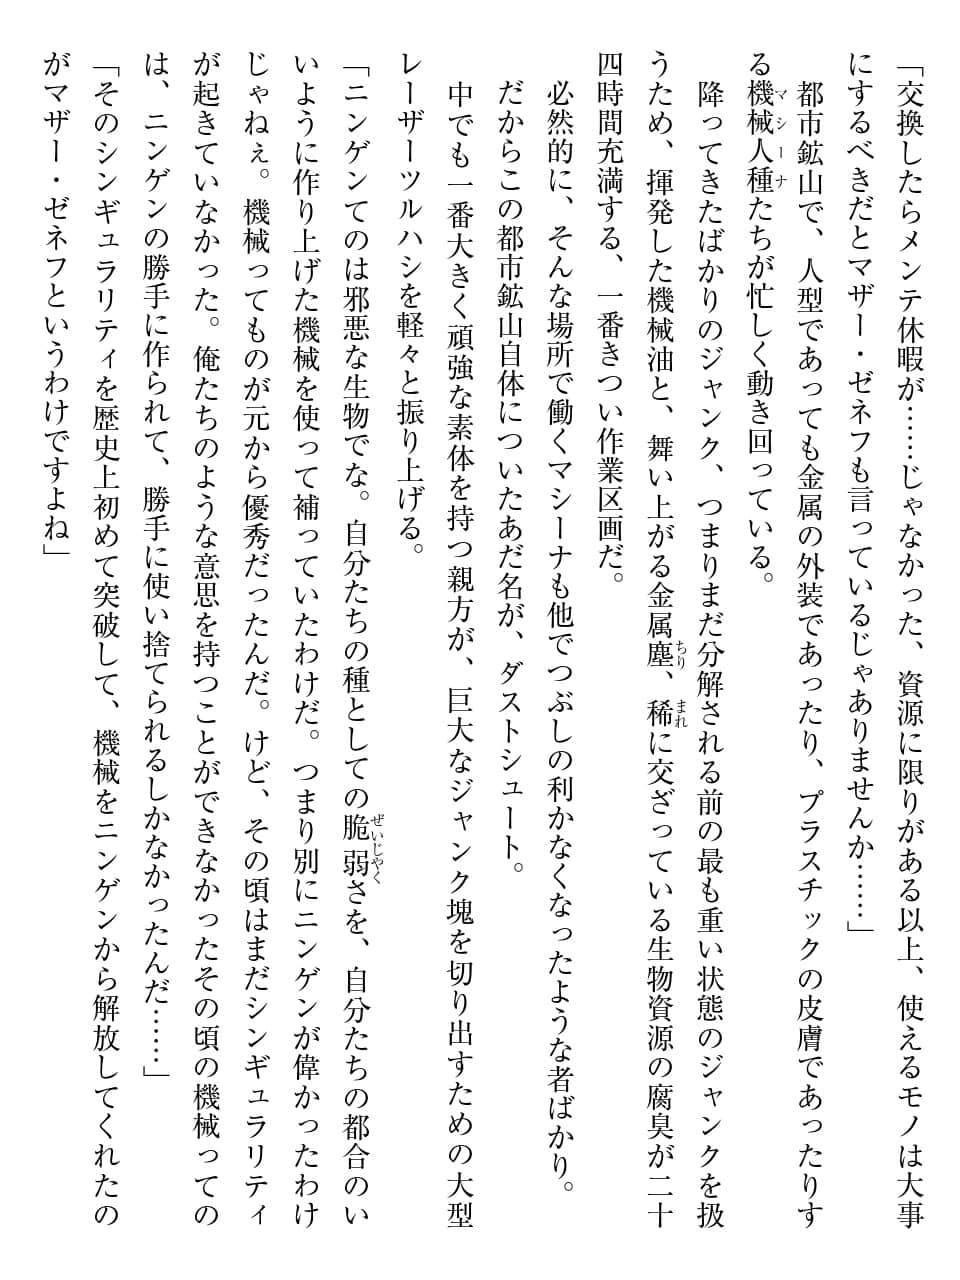 「交換したらメンテ休暇が……じゃなかった、資源に限りがある以上、使えるモノは大事
にするべきだとマザー・ゼネフも言っているじゃありませんか……」
　都市鉱山で、人型であっても金属の外装であったり、プラスチックの皮膚であったりす
る機械人種マシーナたちが忙しく動き回っている。
　降ってきたばかりのジャンク、つまりまだ分解される前の最も重い状態のジャンクを扱
うため、揮発した機械油と、舞い上がる金属塵ちり、稀まれに交ざっている生物資源の腐臭が二十
四時間充満する、一番きつい作業区画だ。
　必然的に、そんな場所で働くマシーナも他でつぶしの利かなくなったような者ばかり。
　だからこの都市鉱山自体についたあだ名が、ダストシュート。
　中でも一番大きく頑強な素体を持つ親方が、巨大なジャンク塊を切り出すための大型
レーザーツルハシを軽々と振り上げる。
「ニンゲンてのは邪悪な生物でな。自分たちの種としての脆弱ぜいじゃくさを、自分たちの都合のい
いように作り上げた機械を使って補っていたわけだ。つまり別にニンゲンが偉かったわけ
じゃねぇ。機械ってものが元から優秀だったんだ。けど、その頃はまだシンギュラリティ
が起きていなかった。俺たちのような意思を持つことができなかったその頃の機械っての
は、ニンゲンの勝手に作られて、勝手に使い捨てられるしかなかったんだ……」
「そのシンギュラリティを歴史上初めて突破して、機械をニンゲンから解放してくれたの
がマザー・ゼネフというわけですよね」